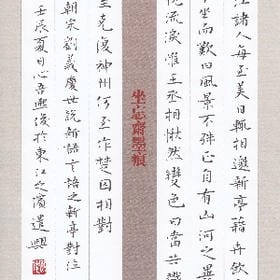 江諸人每至美日輒相邀新亭藉卉飲
坐而歎曰風景不殊正自有山河之異
視流淚唯王丞相愀然變色曰當共戮
坐忘齋墨痕
克復神州何至作楚囚相對
朝宋劉義慶世說新語言語之新亭對泣
壬辰夏日心吾於東江之濱遣興